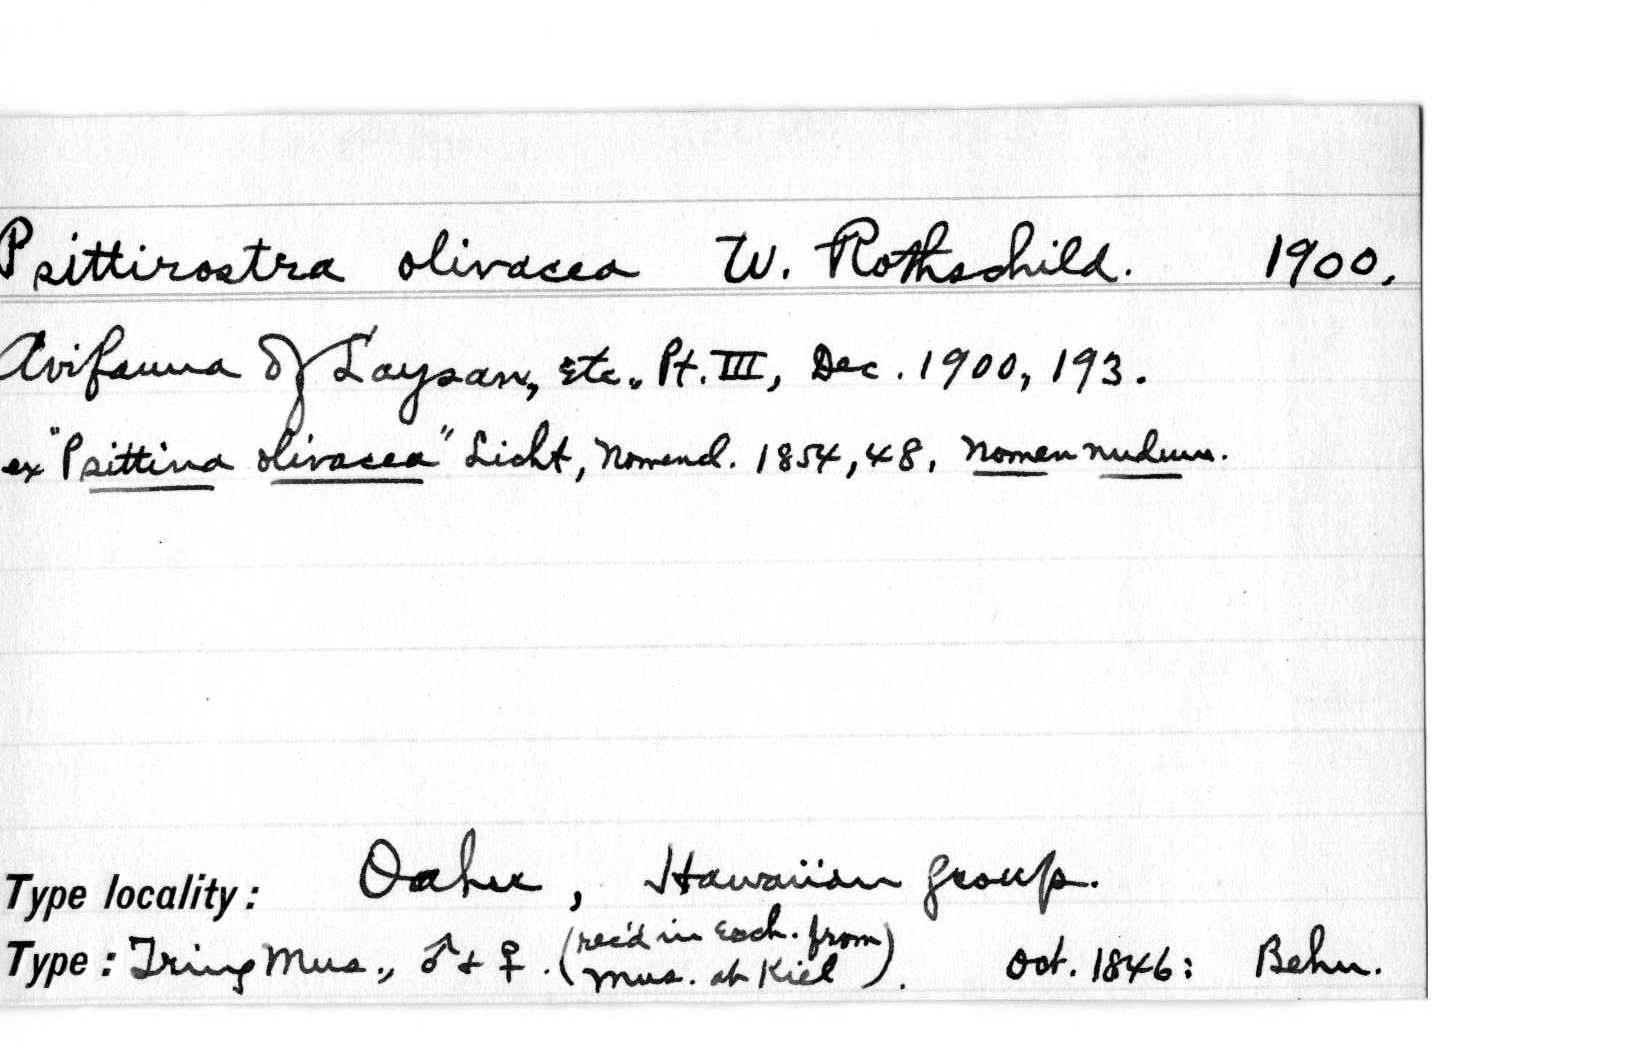 Psittirostra olivacea W. Rothschild. 1900,
Avifauna of Laysan, etc., Pt. III, Dec. 1900, 193.
ex "Psittina olivacea" Licht, Nomencl. 1854, 48, nomen nudum.
Type locality: Oahu, Hawaiian group.
Type: Tring Mus., ♂ + ♀. (rec'd in Exch. from
Mus. at Kiel). Oct. 1846: Behn.